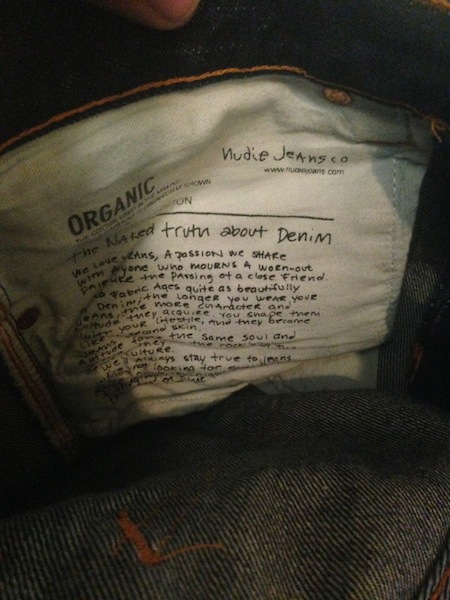 nudie Jeans co
www.nudiejeans.com
ORGANIC
GROWN
ON
the Naked truth about Denim
We Love JEANS, A PASSION WE SHARE
with Anyone who MOURNS A WORN-OUT
PAIR LIKE the PASSING of a close Friend
no FABRIC Ages quite as beautifully
DENIM, the LONGER you WEAR your
JEANS, the more CHARACTER and
they acquire. you SHAPE them
your lifestyle, and they become
second skin.
the same soul and
they the rock
culture.
we'll always stay true to jeans
not looking for